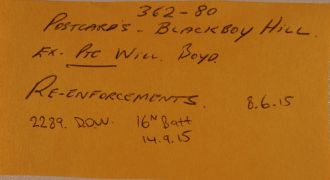 362-80
POSTCARD'S - BLACKBOY HILL.
EX- Pte WILL. BOYD.
RE-ENFORCEMENTS. 8.6.15
2289. D.O.W. 16th Batt
14.9.15